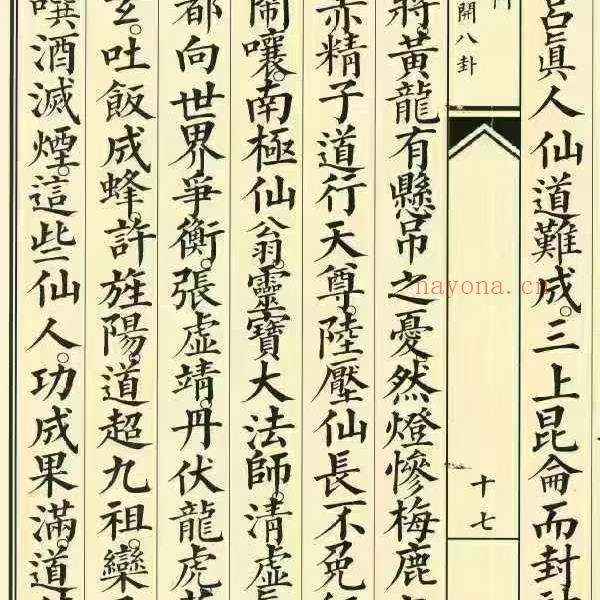 呂眞人仙道難成。三上昆侖而封
開八卦
十七
將。黃龍有懸帛之憂。然燈慘梅鹿
赤精子道行天尊。陸壓仙長不免
鬧嚷。南極仙翁。靈寶大法師。清虛
都向世界爭衡。張虛靖。丹伏龍虎
玄。吐飯成蜂。許旌陽。道超九祖。欒
噀酒滅煙。這些仙人。功成果滿。道
nayona.cn